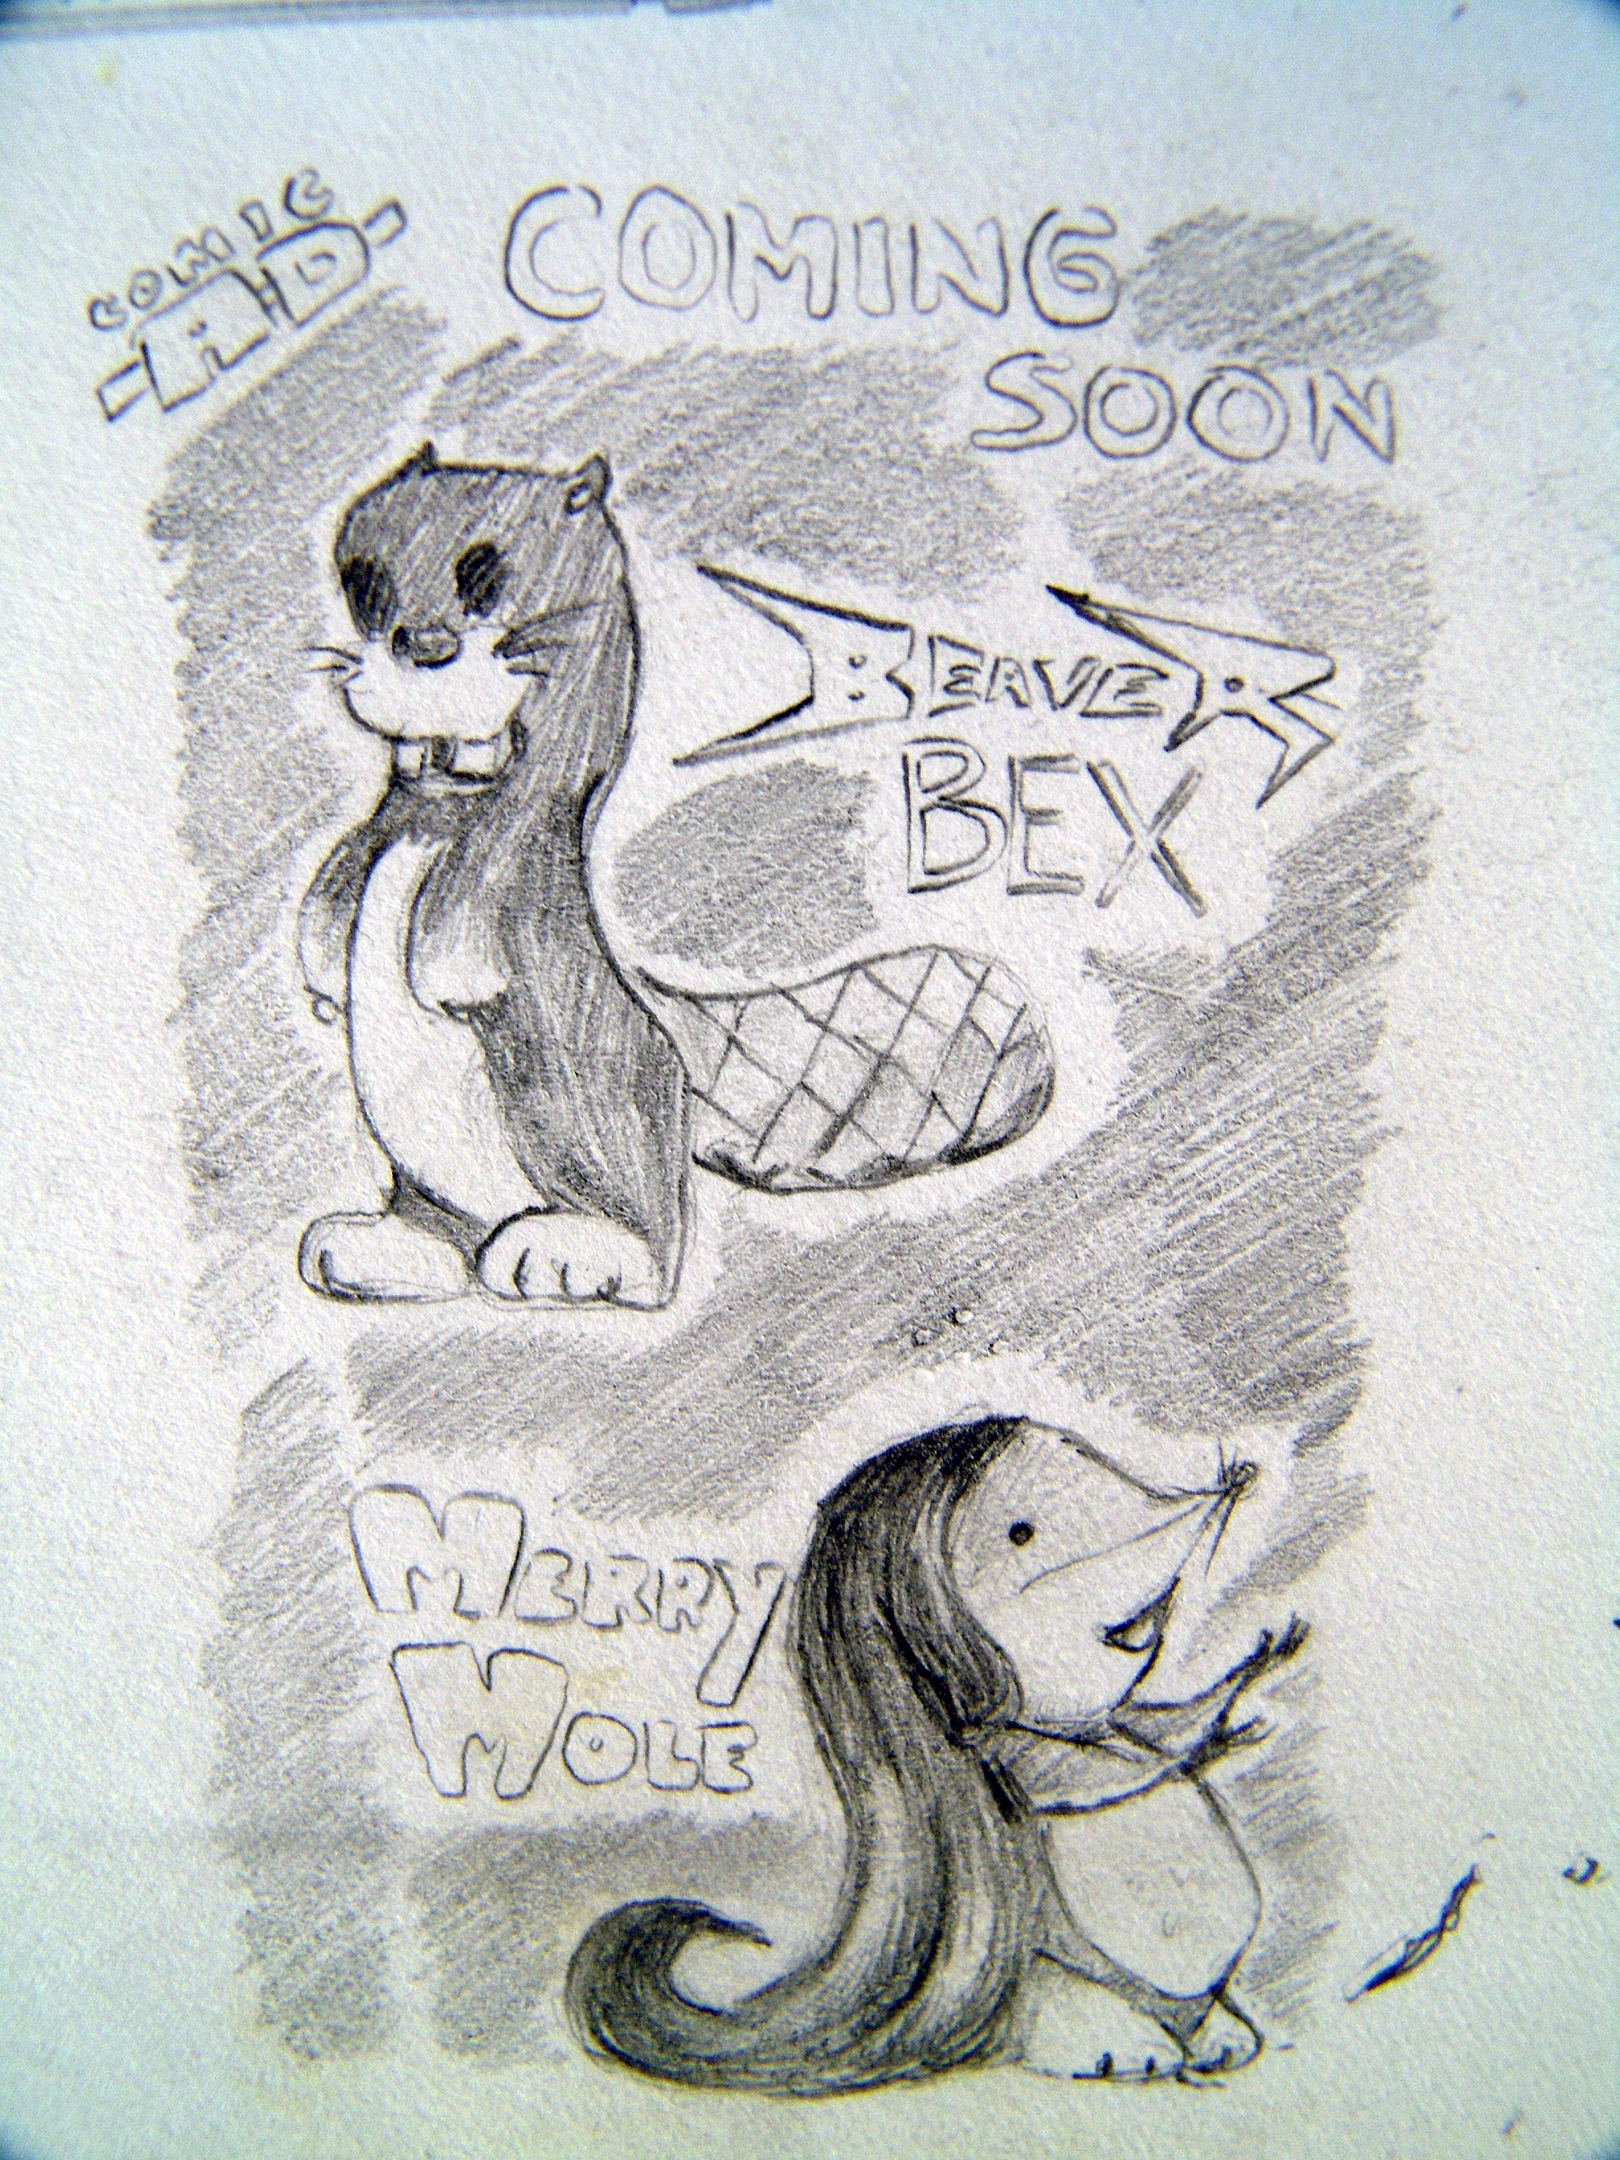 COMIC
-AD-
COMING
SOON
BEAVER
BEX
MERRY
MOLE